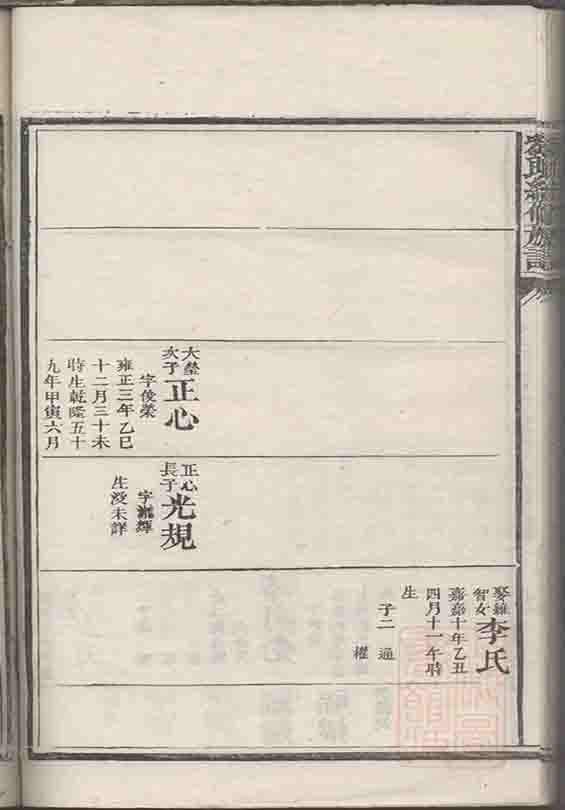 續修族譜
大瑩
次子
正心
字俊榮
雍正三年乙巳
十二月三十未
時生乾隆五十
九年甲寅六月
正心
長子
光規
生歿未詳
娶維
智女
李氏
嘉慶十年乙丑
四月十一午時
生
子二 通
權